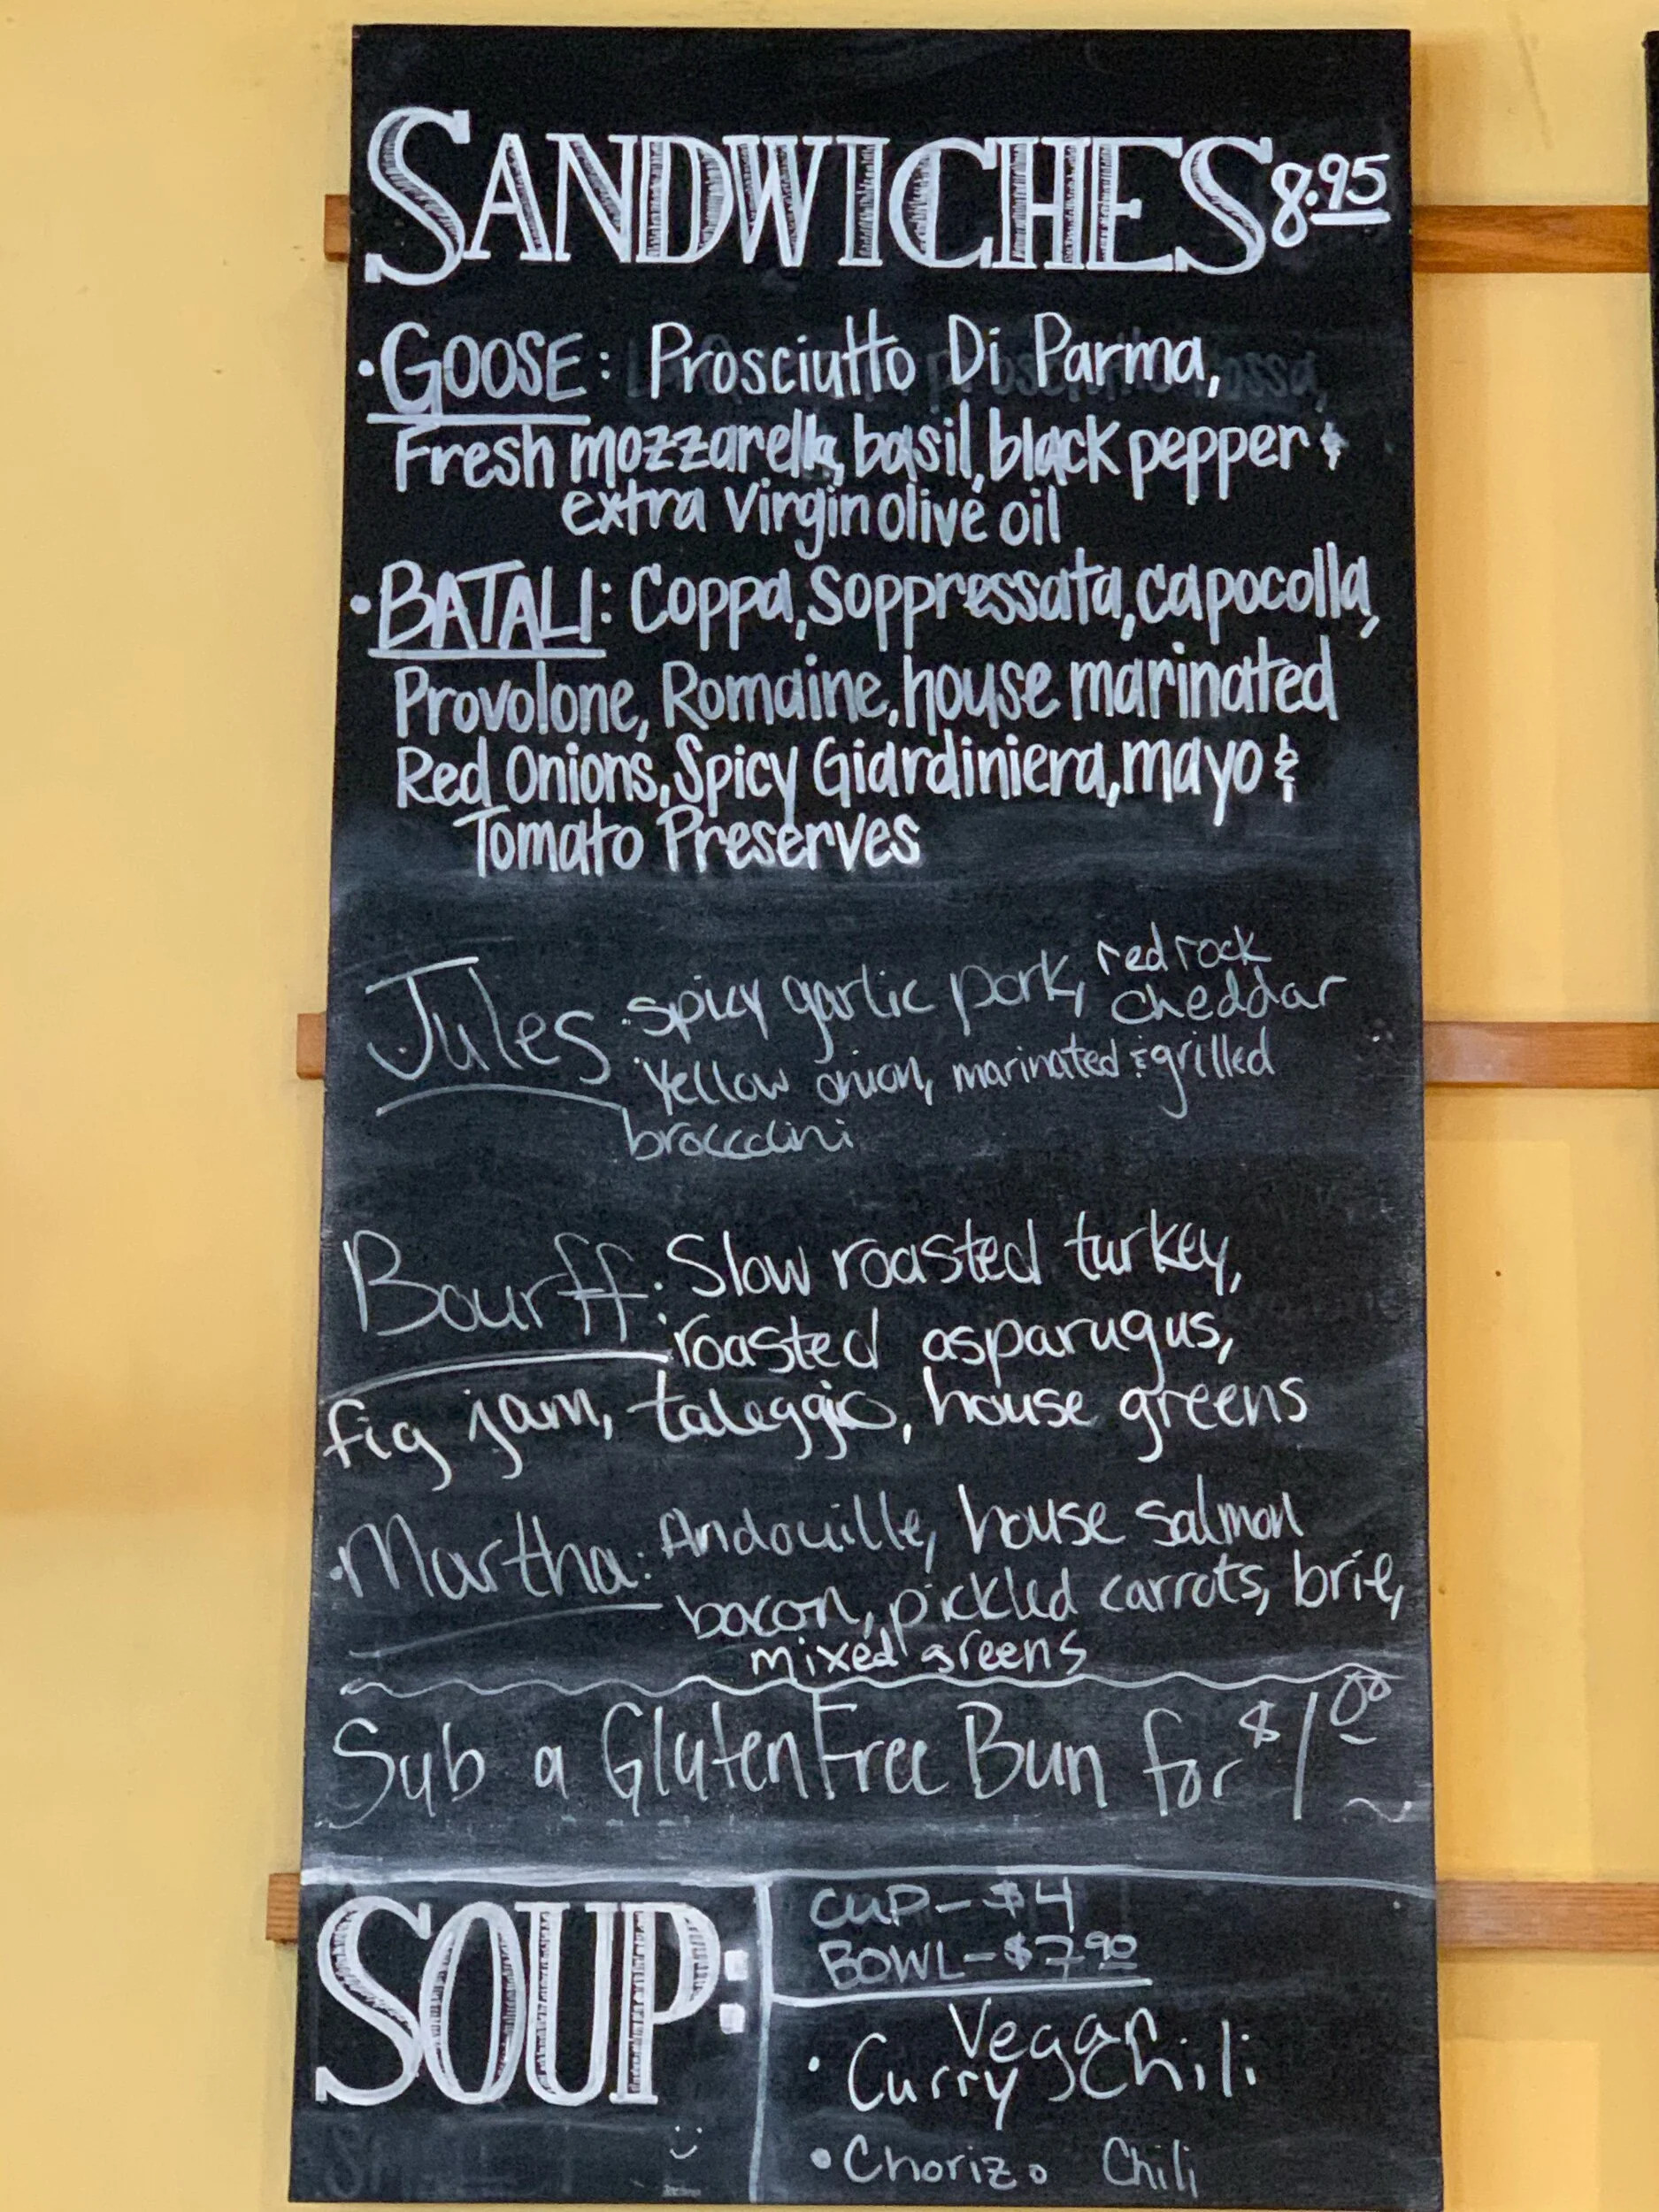 SANDWICHES 8.95
• GOOSE: Prosciutto Di Parma,
Fresh mozzarella, basil, black pepper &
extra virgin olive oil
• BATALI: Coppa, Soppressata, capocolla,
Provolone, Romaine, house marinated
Red Onions, Spicy Giardiniera, mayo &
Tomato Preserves
Jules: spicy garlic pork, red rock cheddar
Yellow onion, marinated & grilled
broccolini
Bourff: Slow roasted turkey,
roasted asparugus,
fig jam, taleggio, house greens
• Martha: Andouille, house salmon
bacon, pickled carrots, brie,
mixed greens
Sub a Gluten Free Bun for $1.00
SOUP:
CUP - $4
BOWL - $7.90
Vegan
• Curry Chili
• Chorizo Chili